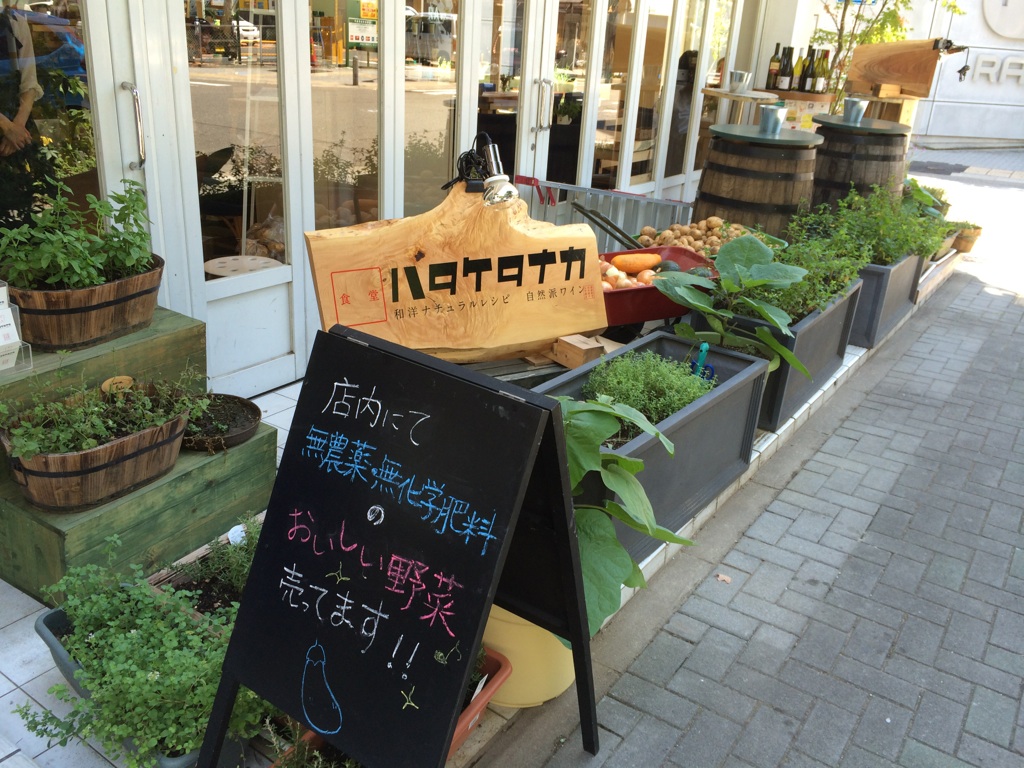 食堂
ハタケタナカ
和洋ナチュラルレシピ 自然派ワイン
店内にて
無農薬・無化学肥料
の
おいしい野菜
売ってます!!